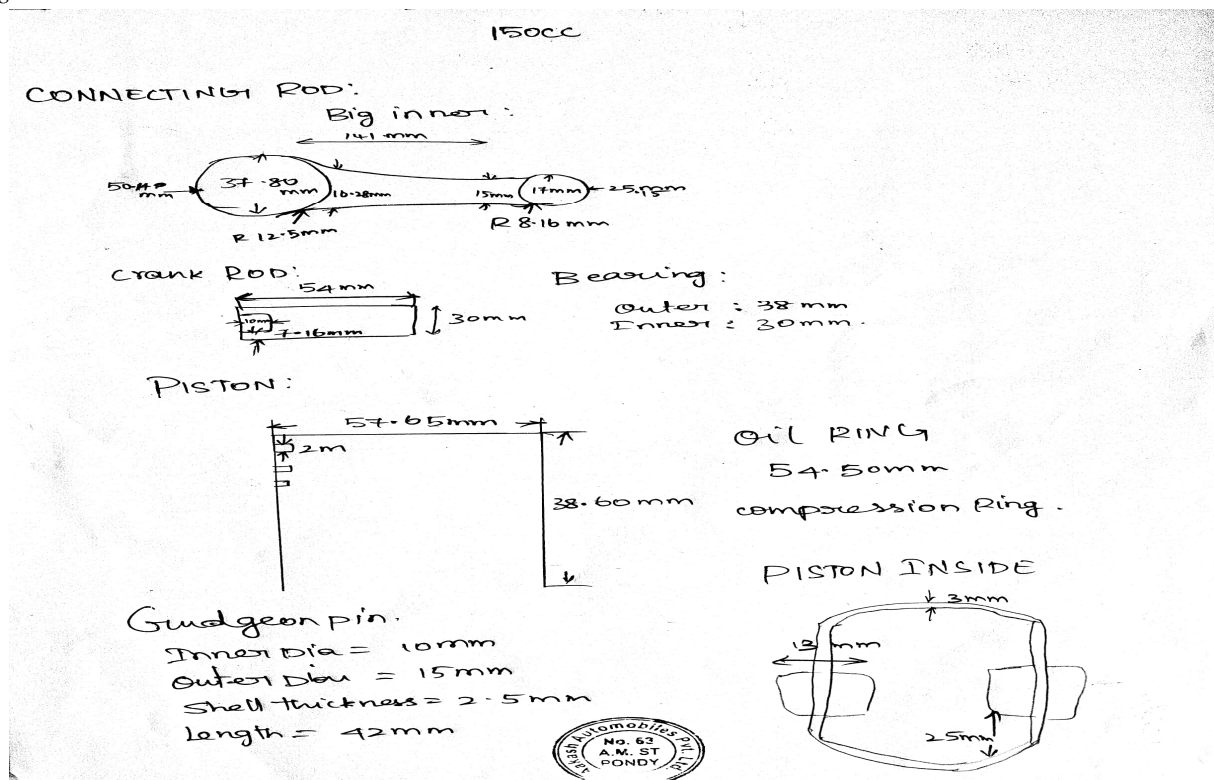 150CC
CONNECTING ROD:
Big inner :
141 mm
37.80 mm
16.28mm
15mm
17mm
R 12.5mm
R 8.16 mm
Crank ROD:
54 mm
30mm
10m
7.16mm
Bearing :
Outer : 38 mm
Inner : 30mm.
PISTON:
57.65mm
2m
38.60 mm
Oil RING
54.50mm
compression Ring.
PISTON INSIDE
3mm
13 mm
25mm
Gudgeon pin.
Inner Dia = 10mm
Outer Dia = 15mm
Shell thickness = 2.5mm
Length = 42mm
Automobiles Pvt. Ltd
No. 63
A.M. ST
PONDY